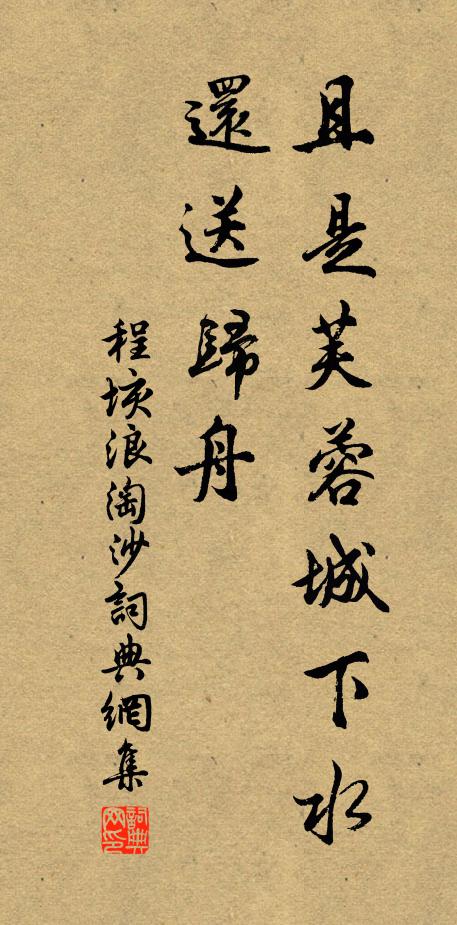 且是芙蓉城下水
還送歸舟
程垓浪淘沙詞典網集
詞典网印